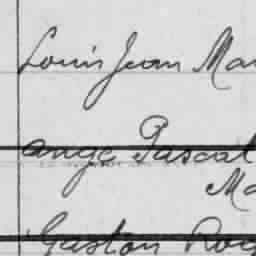 Louis Jean Mar
ange Pascal
Ma
Gaston Rog